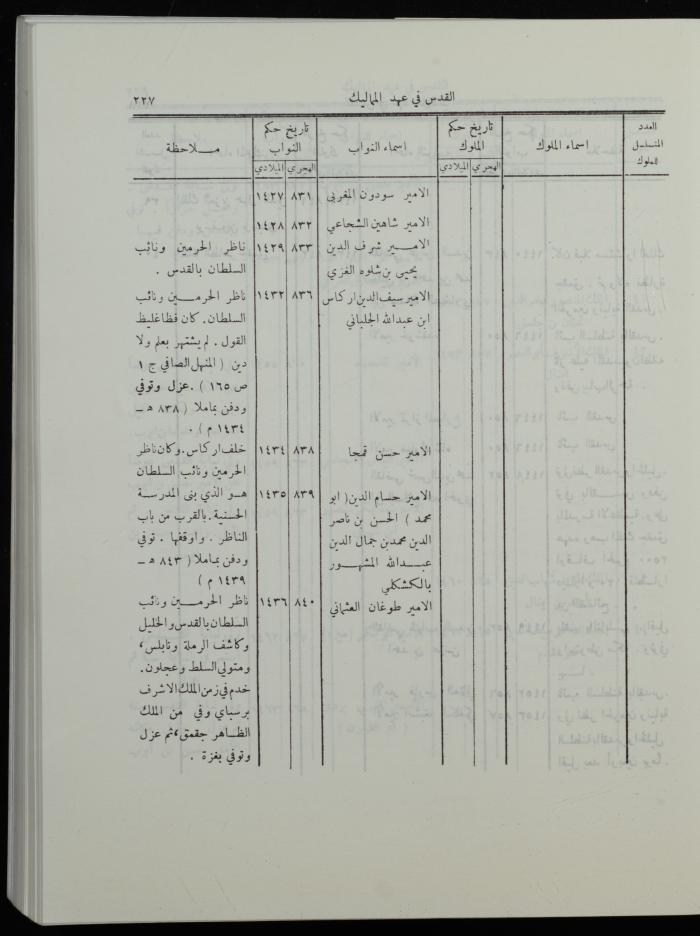 القدس في عهد المماليك
٢٢٧
العدد المتسلسل للملوك
اسماء الملوك
تاريخ حكم الملوك
الهجري الميلادي
اسماء النواب
تاريخ حكم النواب
الهجري الميلادي
ملاحظة
الامير سودون المغربي ٨٣١ ١٤٢٧
الامير شاهين الشجاعي ٨٣٢ ١٤٢٨
الامير شرف الدين ٨٣٣ ١٤٢٩ ناظر الحرمين ونائب
يحيى بن شلوه الغزي السلطان بالقدس .
الامير سيف الدين اركاس ٨٣٦ ١٤٣٢ ناظر الحرمين ونائب
ابن عبدالله الجلباني السلطان . كان فظا غليظ
القول . لم يشتهر بعلم ولا
دين ( المنهل الصافي ج ١
ص ١٦٥ ) . عزل وتوفي
ودفن بماملا ( ٨٣٨ ه –
١٤٣٤ م ) .
الامير حسن قمجا ٨٣٨ ١٤٣٤ خلف اركاس . وكان ناظر
الحرمين ونائب السلطان
الامير حسام الدين ( ابو ٨٣٩ ١٤٣٥ هو الذي بنى المدرسة
محمد ) الحسن بن ناصر الحسنية . بالقرب من باب
الدين محمد بن جمال الدين الناظر . واوقفها . توفي
عبدالله المشهور ودفن بماملا ( ٨٤٣ ه –
بالكشكلي ١٤٣٩ م )
الامير طوغان العثماني ٨٤٠ ١٤٣٦ ناظر الحرمين ونائب
السلطان بالقدس والخليل
وكاشف الرملة ونابلس ،
ومتولي السلط وعجلون .
خدم في زمن الملك الاشرف
برسباي وفي من الملك
الظاهر جقمق ، ثم عزل
وتوفي بغزة .